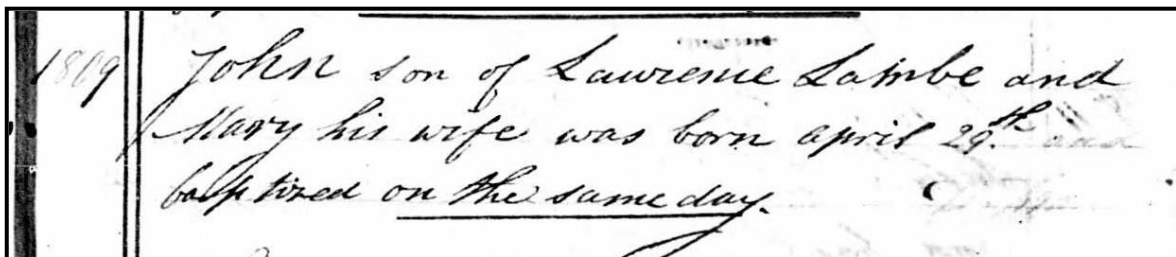 1809 John son of Lawrence Lambe and
Mary his wife was born april 29th and
baptized on the same day.